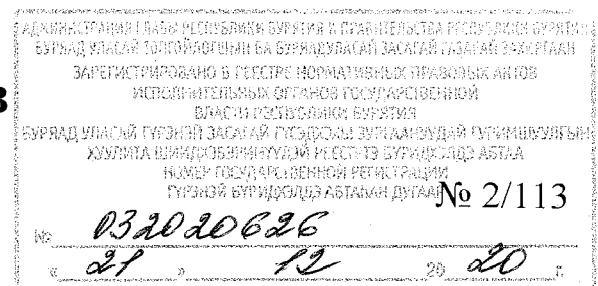 АДМИНИСТРАЦИЯ ГЛАВЫ РЕСПУБЛИКИ БУРЯТИЯ И ПРАВИТЕЛЬСТВА РЕСПУБЛИКИ БУРЯТИЯ
БУРЯАД УЛАСАЙ ТОЛГОЙЛОГШЫН БА БУРЯАД УЛАСАЙ ЗАСАГАЙ ГАЗАРАЙ ЗАХИРГААН
ЗАРЕГИСТРИРОВАНО В РЕЕСТРЕ НОРМАТИВНЫХ ПРАВОВЫХ АКТОВ
ИСПОЛНИТЕЛЬНЫХ ОРГАНОВ ГОСУДАРСТВЕННОЙ
ВЛАСТИ РЕСПУБЛИКИ БУРЯТИЯ
БУРЯАД УЛАСАЙ ГҮРЭНЭЙ ЗАСАГАЙ
РЕЕСТРТЭ БҮРИДХЭЛДЭ АБТАА
НОМЕР ГОСУДАРСТВЕННОЙ РЕГИСТРАЦИИ
ГҮРЭНЭЙ БҮРИДХЭЛДЭ АБТАҺАН ДУГААР
№ 2/113
№ 032020626
« 21 » 12 20 20 г.